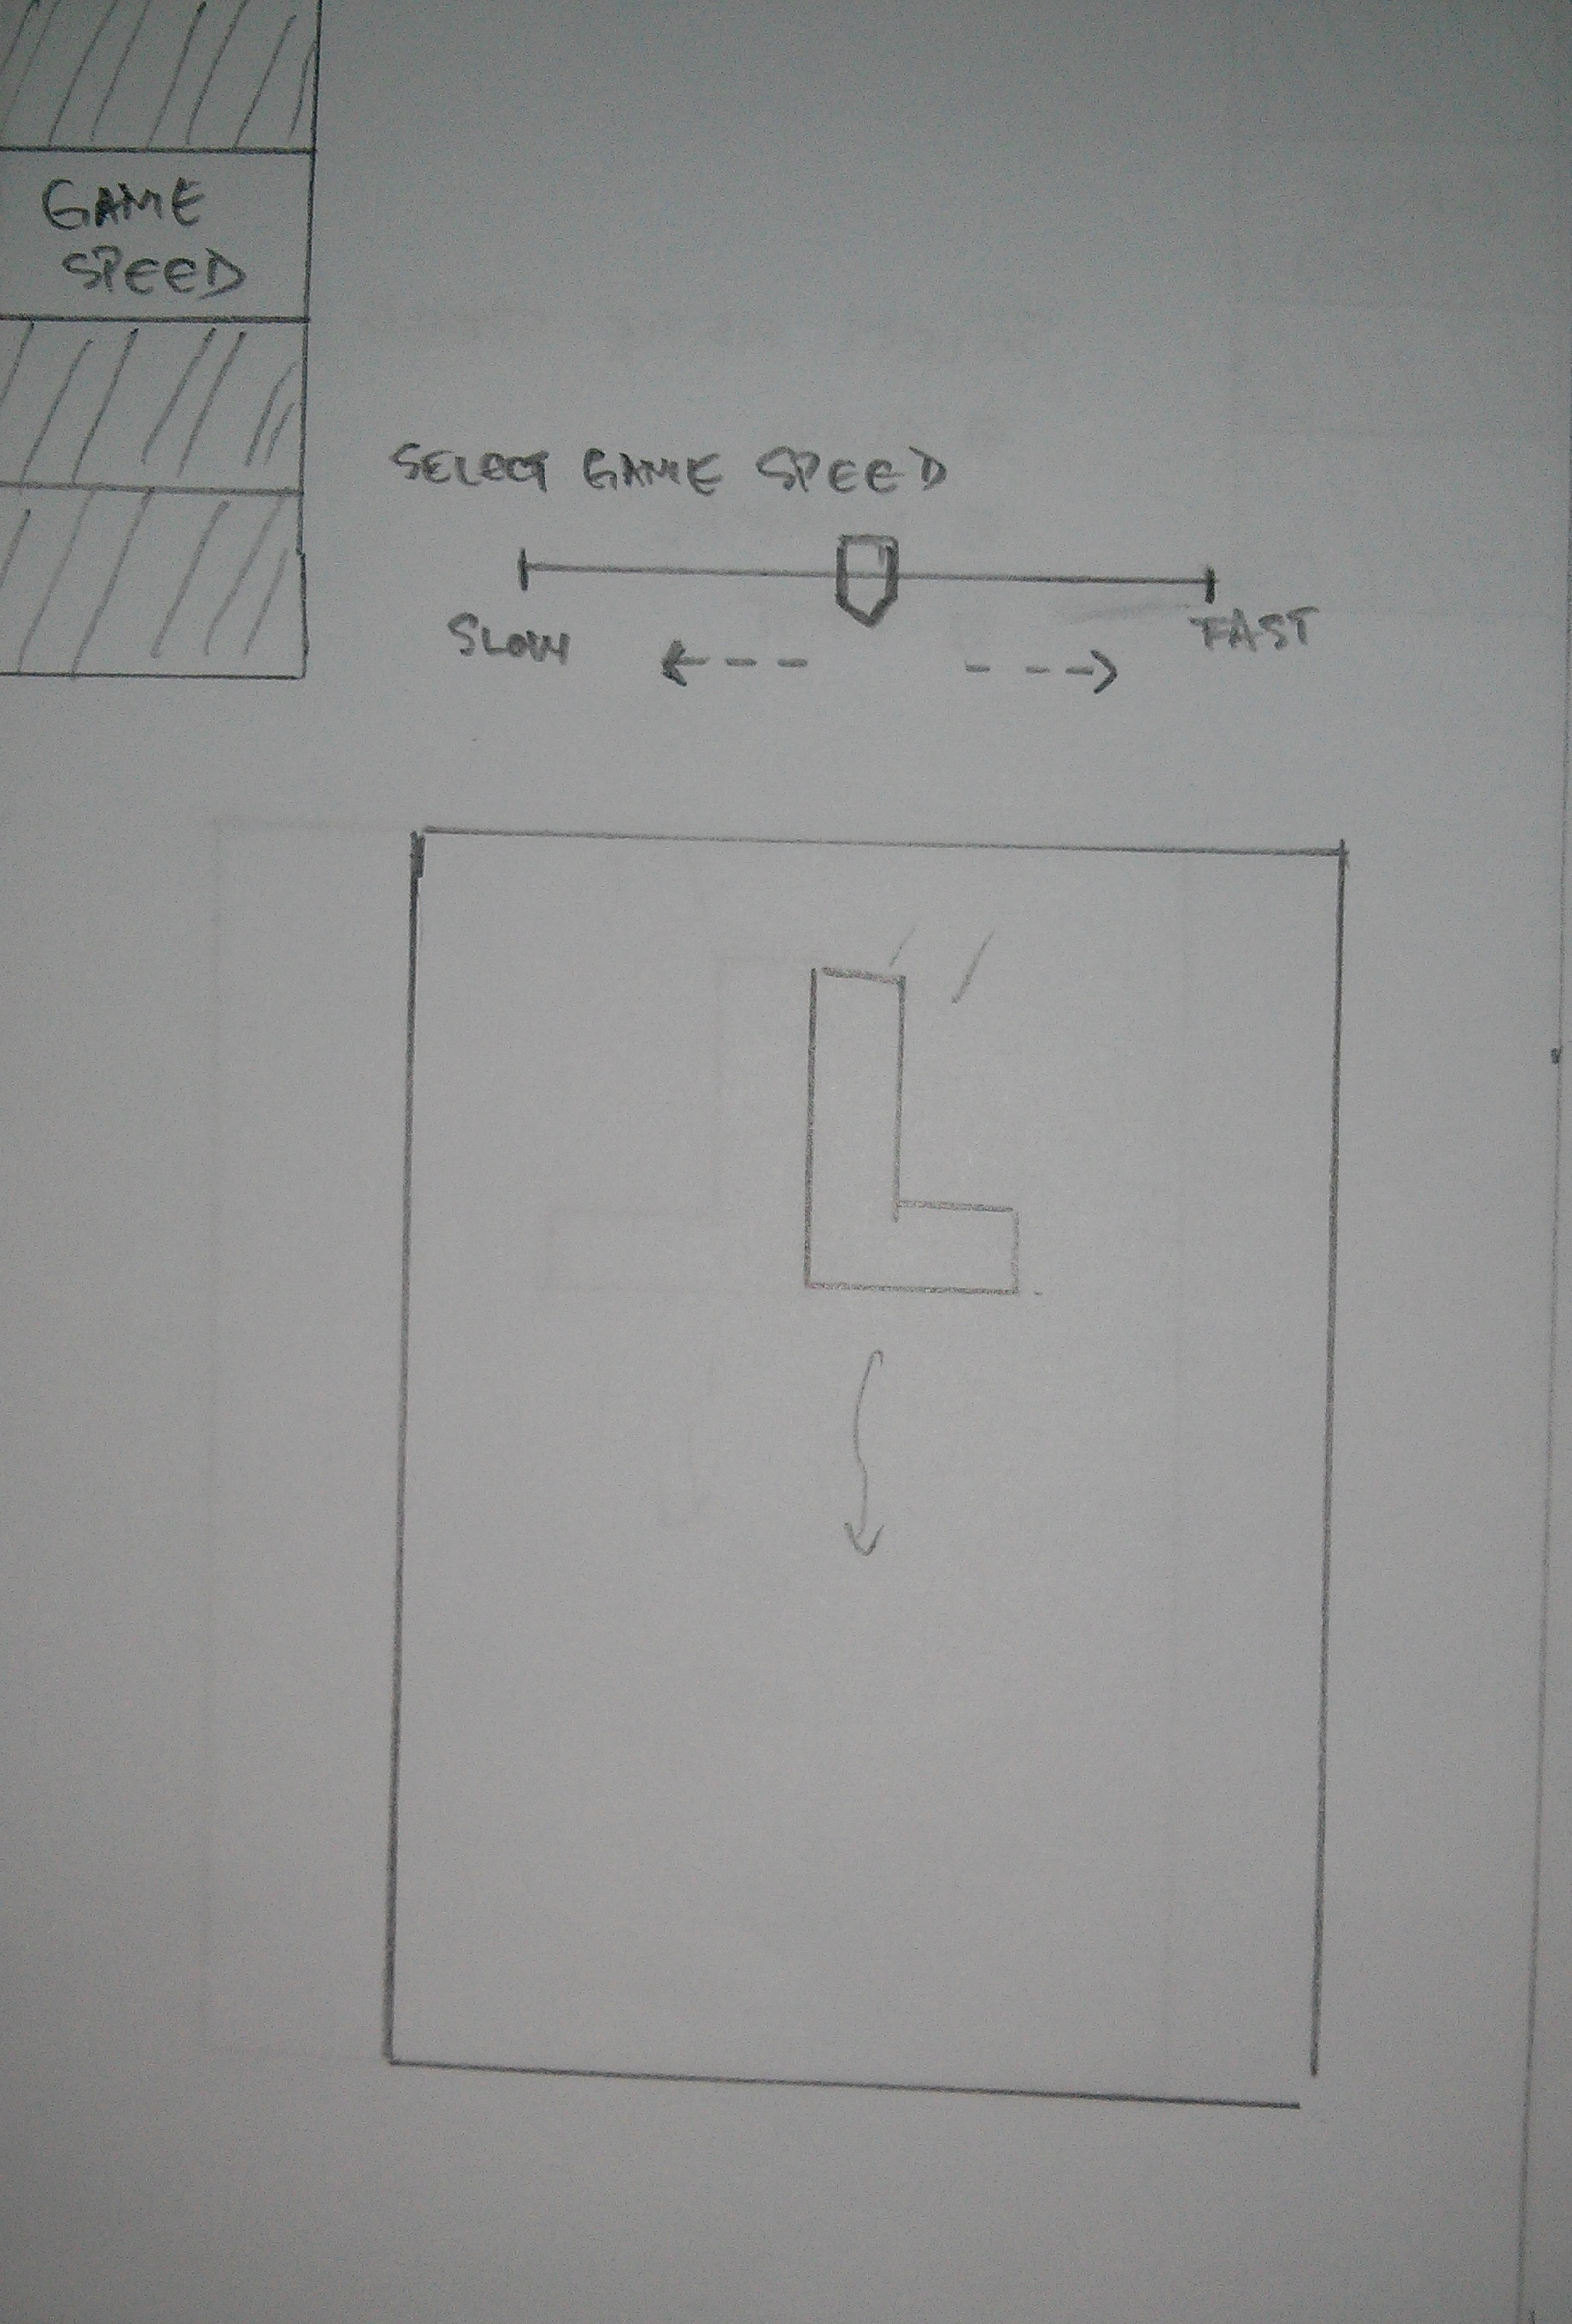 GAME
SPEED
SELECT GAME SPEED
SLOW
FAST